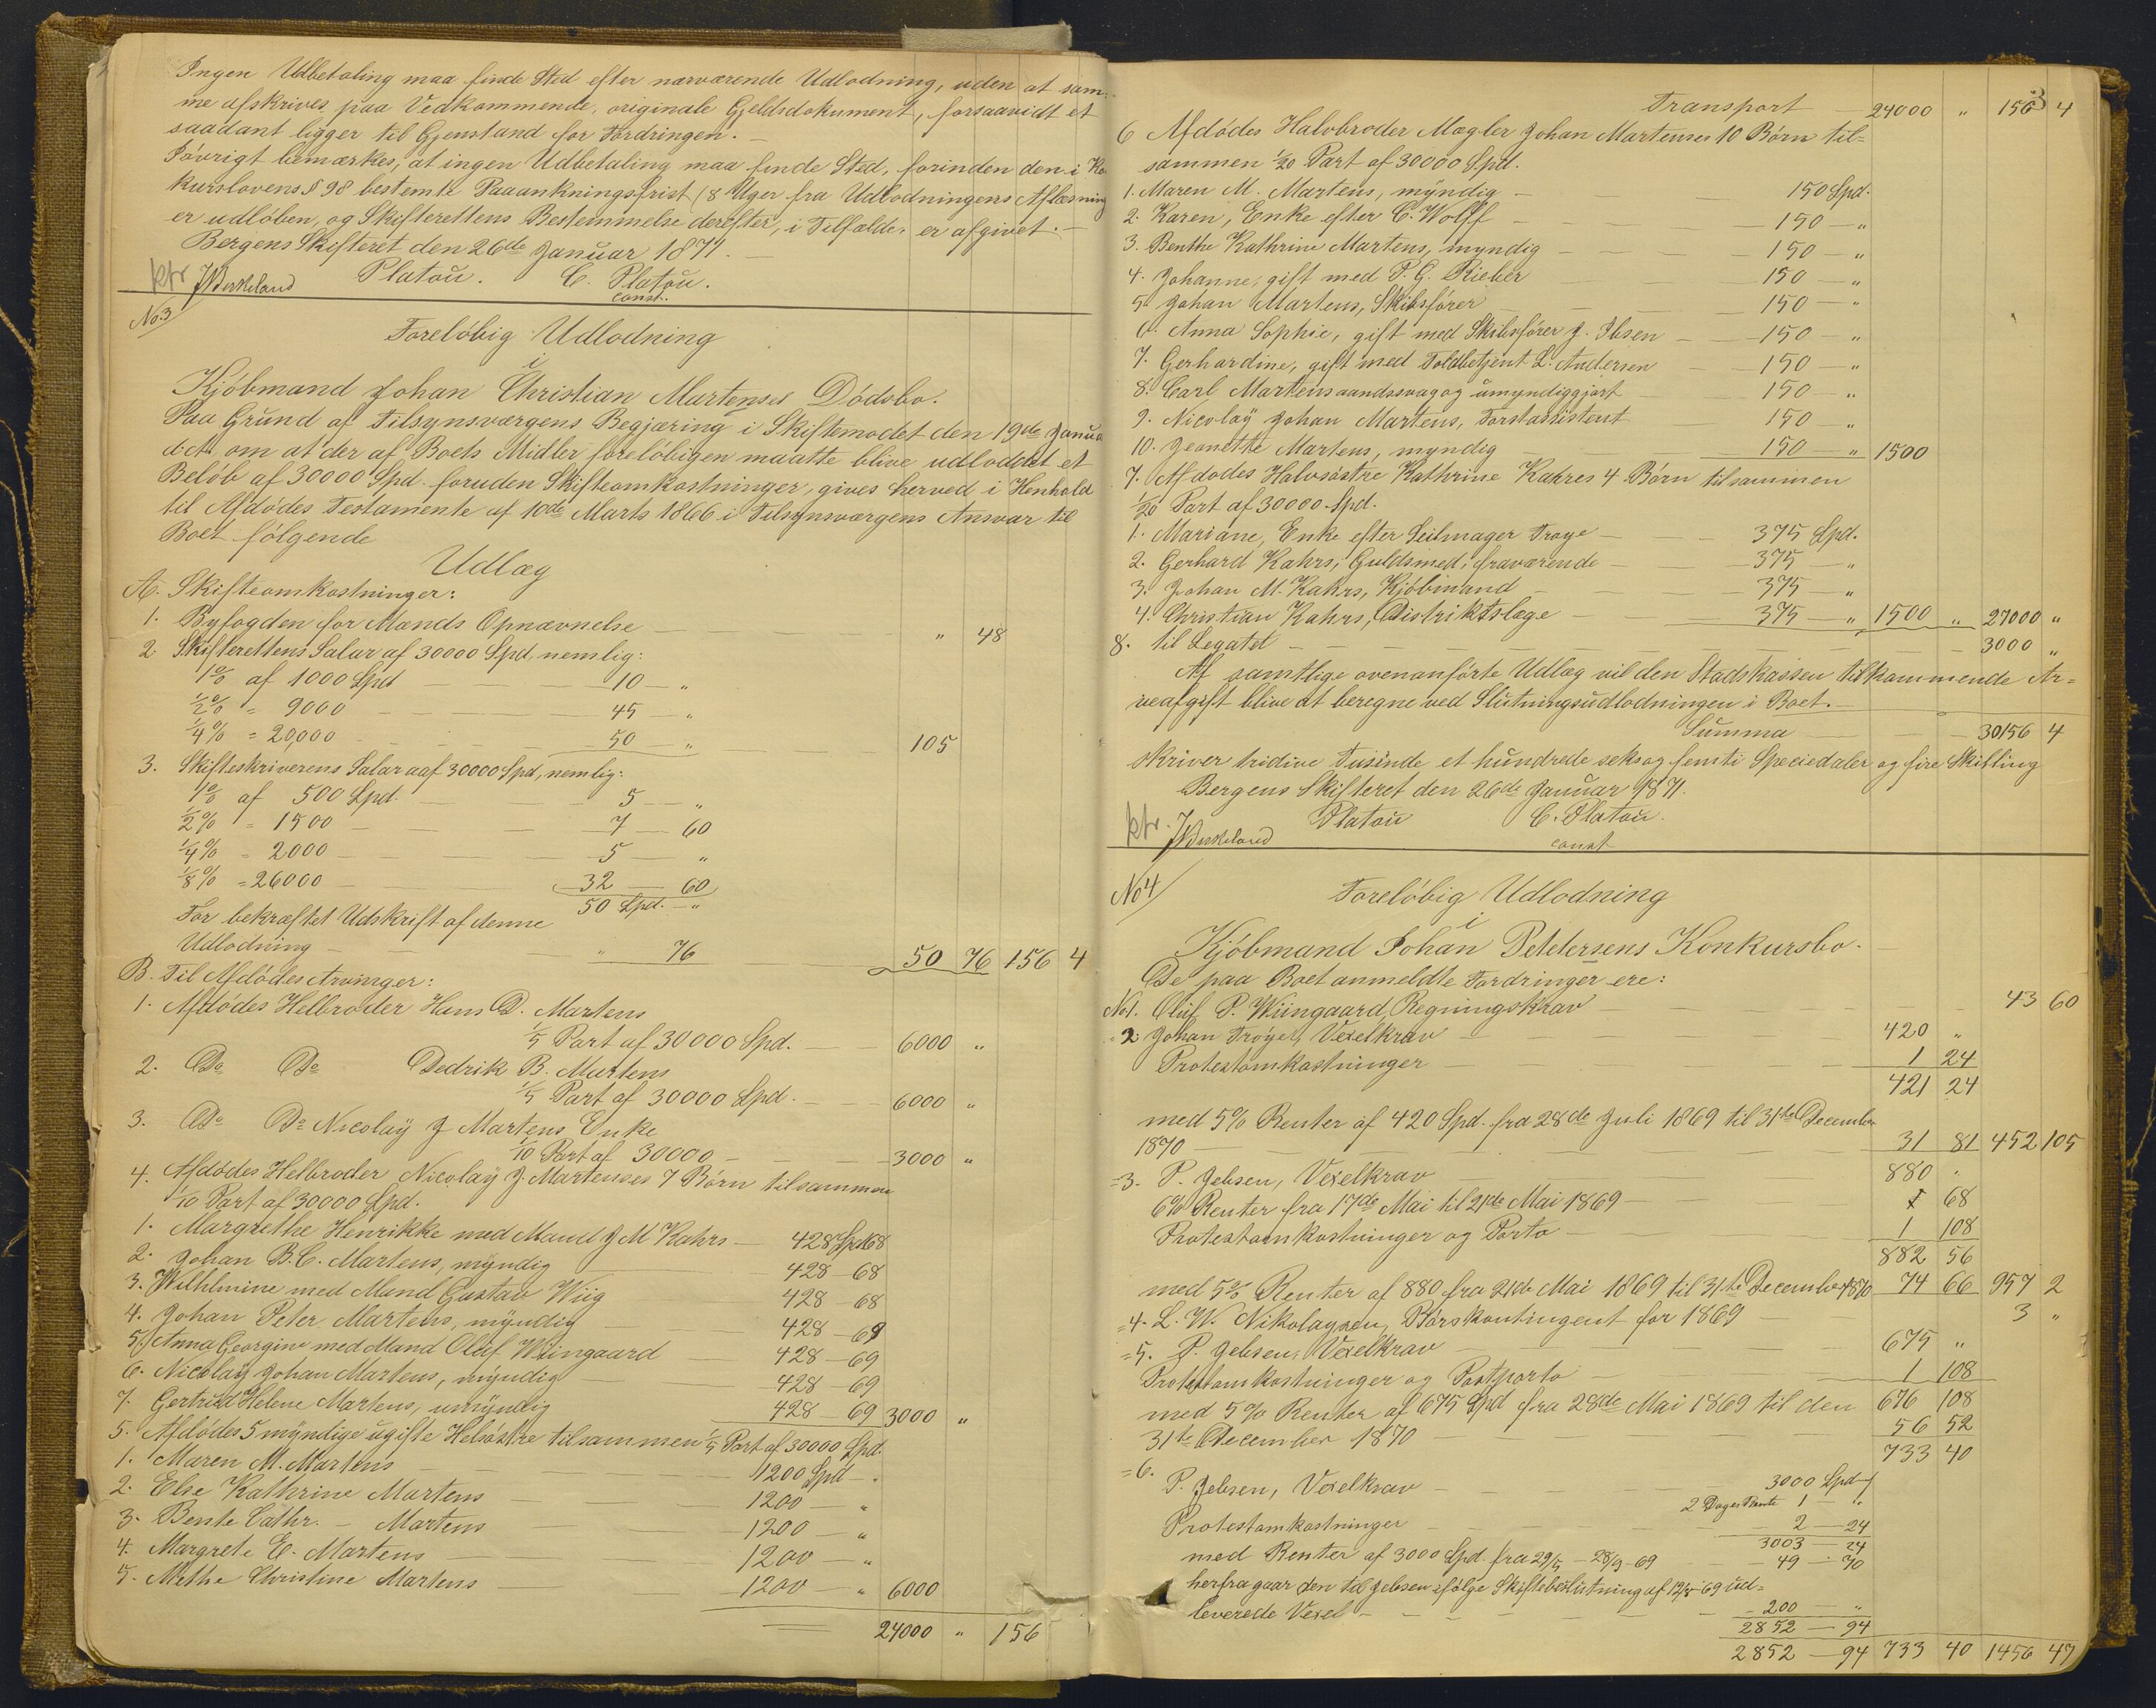 Ingen Udbetaling maa finde Sted efter nærværende Udlodning, uden at sam-
me afskrives paa Vedkommende, originale Gjeldsdokument, forsaavidt et
saadant ligger til Gjenstand for Fordringen.
Iøvrigt bemærkes, at ingen Udbetaling maa finde Sted, forinden den i Ko
kurslovens § 98 bestemte Paaankningsfrist (8 Uger fra Udlodningens Aflæsning
er udløben, og Skifterettens Bestemmelse derefter, i Tilfælde, er afgivet. —
Bergens Skifteret den 26de Januar 1871. —
ktr JBirkeland Platou. C. Platou.
const.
No 3
Foreløbig Udlodning
i
Kjøbmand Johan Christian Martenses Dødsbo.
Paa Grund af Tilsynsværgens Begjæring i Skiftemødet den 19de Janua
d:ct: om at der af Boets Midler foreløbigen maatte blive udloddet et
Beløb af 30000 Spd. foruden Skifteomkostninger, gives herved i Henhold
til Afdødes Testamente af 10de Marts 1866 i Tilsynsværgens Ansvar til
Boet følgende
Udlæg
A. Skifteomkostninger:
1. Byfogden for Mands Opnævnelse — " 48
2. Skifterettens Salar af 30000 Spd, nemlig:
1% af 1000 Spd — 10 — "
1/2% = 9000 — 45 — "
1/4% = 20,000 — 50 — " — 105
3. Skifteskriverens Salar aaf 30000 Spd, nemlig:
1% af 500 Spd. — 5 — "
1/2% = 1500 — 7 — 60
1/4% = 2000 — 5 — "
1/8% = 26000 — 32 — 60
50 Spd. — "
For bekræftet Udskrift af denne
Udlodning — " 76 50 76 156 4
B. Til Afdødes Arvinger:
1. Afdødes Helbroder Hans D. Martens
1/5 Part af 30000 Spd. — 6000 "
2. Do Do Dedrik B. Martens
1/5 Part af 30000 Spd. — 6000 "
3. Do Do Nicolaÿ J Martens Enke
1/10 Part af 30000 — 3000 "
4. Afdødes Helbroder Nicolaÿ J. Martenses 7 Børn tilsammen
1/10 Part af 30000 Spd.
1. Margrethe Henrikke med Mand J M Kahrs — 428 Spd 68
2. Johan B. C. Martens, mÿndig 428 — 68
3. Wilhlmine med Mand Gustav Wiig 428 — 68
4. Johan Peter Martens, mÿndig — 428 — 69
5. Anna Georgine med Mand Oluf Wiingaard — 428 — 69
6. Nicolaÿ Johan Martens, mÿndig — 428 — 69
7. Gertrud Helene Martens, umÿndig 428 — 69 3000 "
5. Afdødes 5 mÿndige ugifte Helsøstre tilsammen 1/5 Part af 30000 Spd.
1. Maren M. Martens — 1200 Spd — "
2. Else Kathrine Martens — 1200 — "
3. Bente Cathr. — Martens — 1200 — "
4. Margrete E. Martens — 1200 — "
5. Methe Christine Martens — 1200 — " 6000
24000 " 156
3
Transport — 24000 " 156 4
6 Afdødes Halvbroder Mægler Johan Martenses 10 Børn til-
sammen 1/20 Part af 30000 Spd.
1. Maren M. Martens, mÿndig — 150 Spd.
2. Karen, Enke efter C. Wolff — 150 — "
3. Benthe Kathrine Martens, mÿndig — 150 — "
4. Johanne, gift med P. G. Rieber — 150 — "
5. Johan Martens, Skibsfører — 150 — "
6. Anna Sophie, gift med Skibsfører J. Ibsen — 150 — "
7. Gerhardine, gift med Toldbetjent L. Andersen — 150 — "
8. Carl Martens aandssvag og umyndiggjort 150 — "
9. Nicolaÿ Johan Martens, Forstassistent 150 — "
10. Jeanette Martens, mÿndig — 150 — " 1500
7. Afdødes Halvsøstre Kathrine Kahres 4 Børn tilsammen
1/20 Part af 30000 Spd.
1. Mariane, Enke efter Seilmager Troye — 375 Spd.
2. Gerhard Kahrs, Guldsmed, fraværende — 375 — "
3. Johan M. Kahrs, Kjøbmand — 375 — "
4. Christian Kahrs, Distriktslæge — 375 — " 1500 " 27000 "
8. til Legatet — 3000 "
Af samtlige ovenanførte Udlæg vil den Stadskassen tilkommende Ar-
veafgift blive at beregne ved Slutningsudlodningen i Boet. —
Summa — 30156 4
skriver tridive Tusinde et hundrede seksog femti Speciedaler og fire Skilling
Bergens Skifteret den 26de Januar 1871.
ktr. JBirkeland Platou C. Platou.
const
No 4
Foreløbig Udlodning
i
Kjøbmand Johan Petdersens Konkursbo. —
De paa Boet anmeldte Fordringer ere:
No 1. Oluf P. Wiingaard, Regningskrav — 43 60
" 2. Johan Trøye, Vexelkrav — 420 "
Protestomkostninger — 1 24
421 24
med 5% Renter af 420 Spd. fra 28de Juli 1869 til 31te December
1870 — 31 81 452 105
= 3. P. Jebsen, Vexelkrav 880 "
6% Renter fra 17de Mai til 21de Mai 1869 — " 68
Protestomkostninger og Porto — 1 108
882 56
med 5% Renter af 880 fra 21de Mai 1869 til 31te December 1870 74 66 957 2
= 4. L. W. Nikolaysen, Børskontingent for 1869 — 3 "
= 5. P. Jebsen, Vexelkrav — 675 "
Protestomkostninger og Postporto — 1 108
med 5% Renter af 675 Spd fra 28de Mai 1869 til den 676 108
31te December 1870 — 56 52
733 40
= 6. P. Jebsen, Vexelkrav — 3000 Spd —
2 Dages Rente 1 — "
Protestomkostninger — 2 — 24
3003 — 24
med Renter af 3000 Spd. fra 29/5 — 28/9 - 69 — 49 — 70
herfra gaar den til Jebsen ifølge Skiftebeslutning af 12/8 69 ud-
leverede Vexel — 200 — "
2852 — 94
2852 — 94 733 40 1456 47